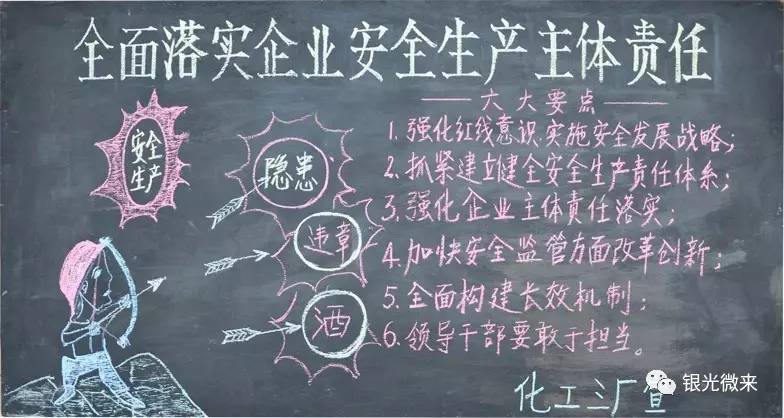 全面落实企业安全生产主体责任
安全
生产
隐患
违章
酒
六大要点
1.强化红线意识.实施安全发展战略;
2.抓紧建立健全安全生产责任体系;
3.强化企业主体责任落实;
4.加快安全监管方面改革创新;
5.全面构建长效机制;
6.领导干部要敢于担当。
化工三厂宣
银光微来